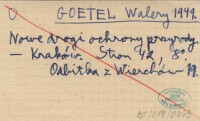 O GOETEL Walery 1949.
Nowe drogi ochrony przyrody.
— Kraków. Stron 42, 8°
Odbitka z Wierchów 19.